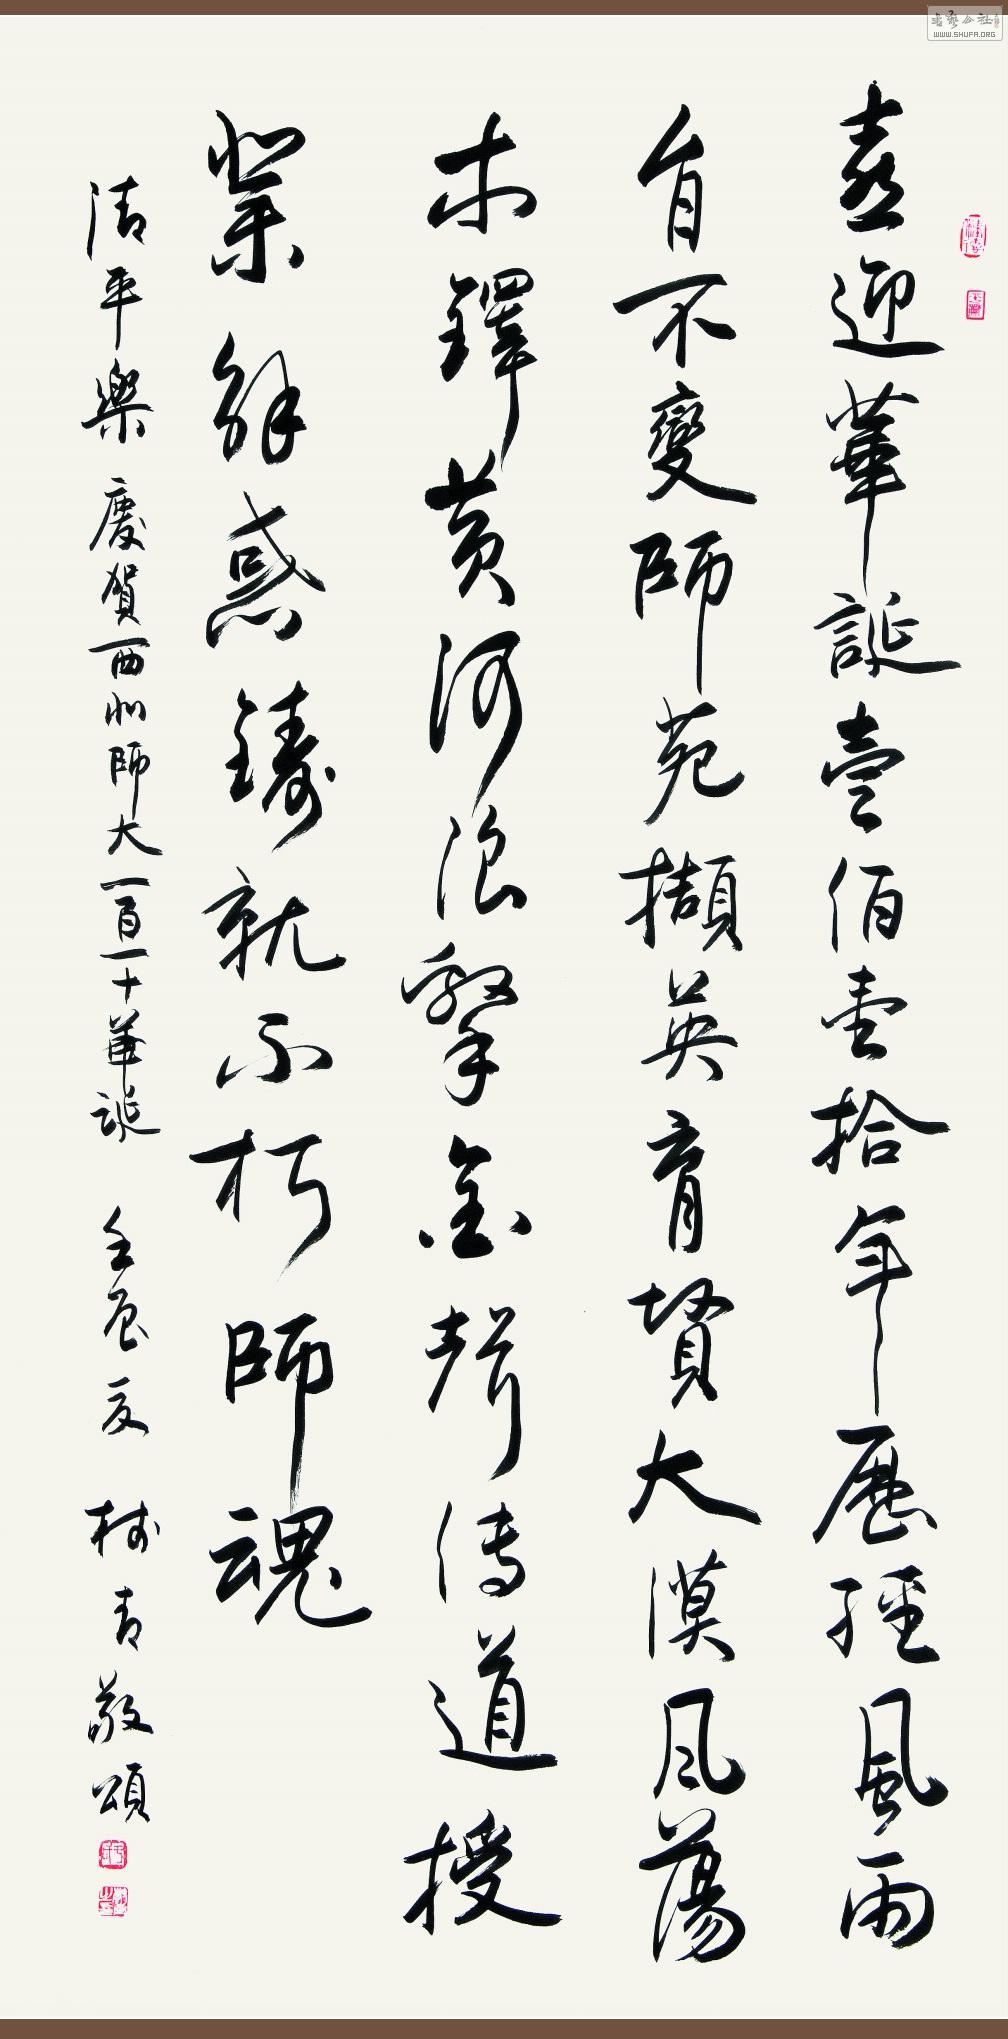 喜迎華誕壹佰壹拾年歷經風雨
旨不變師苑擷英育賢大漠風蕩
木鐸黃河浪擊金聲傳道授
業解惑鑄就不朽師魂
清平樂 慶賀西北師大一百一十華誕 壬辰夏 樹青敬頌
WWW.SHUFA.ORG